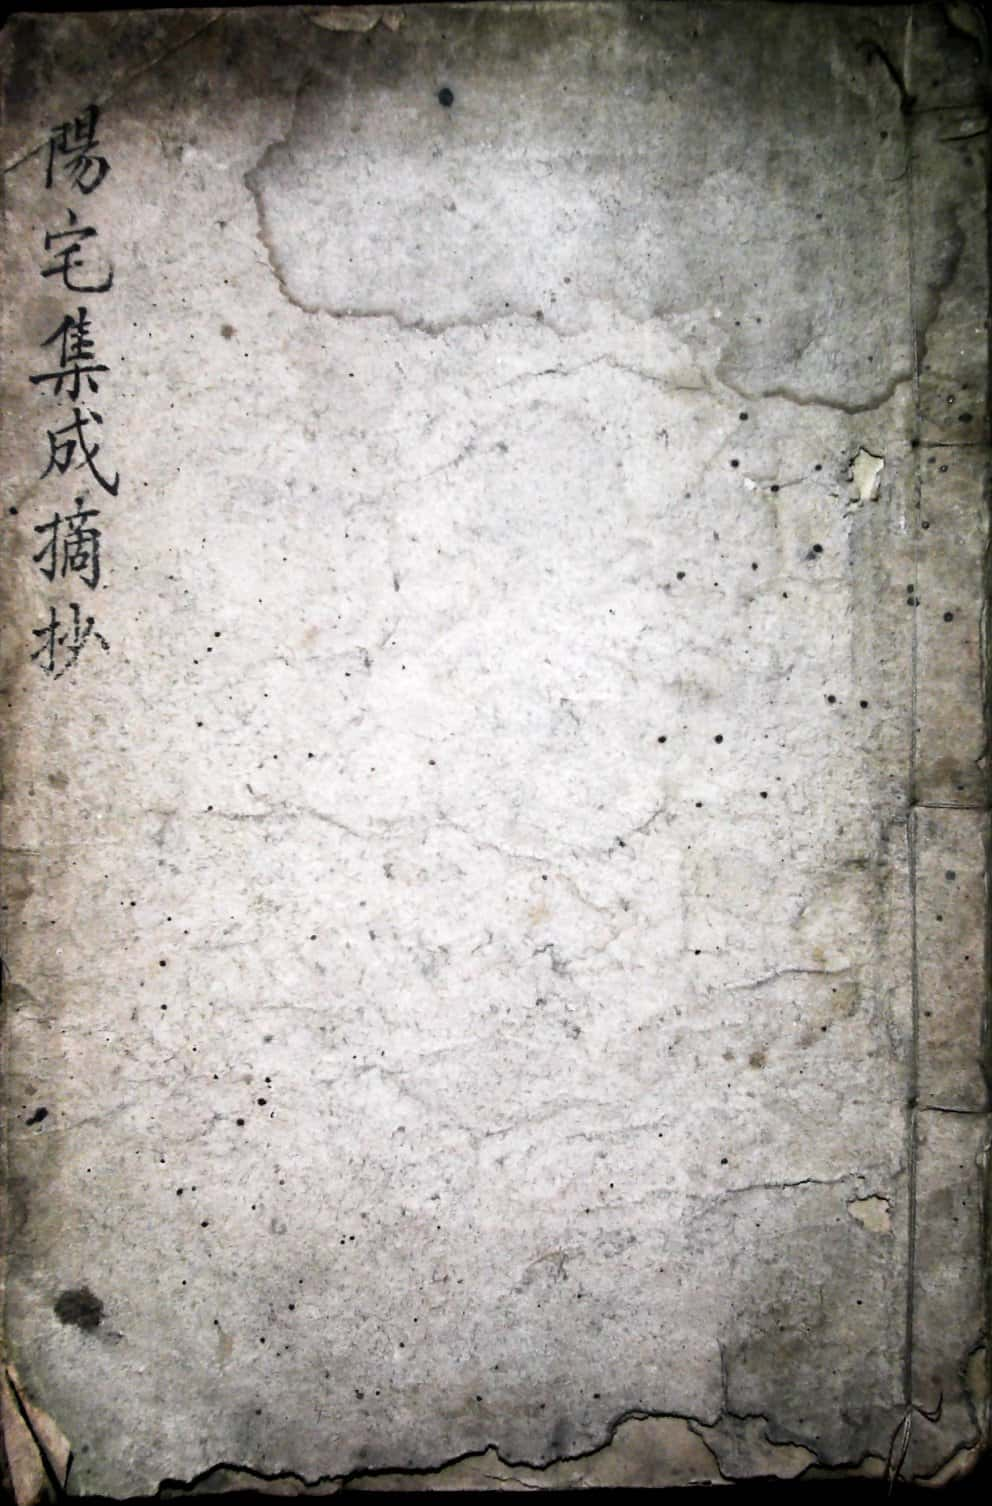 陽宅集成摘抄